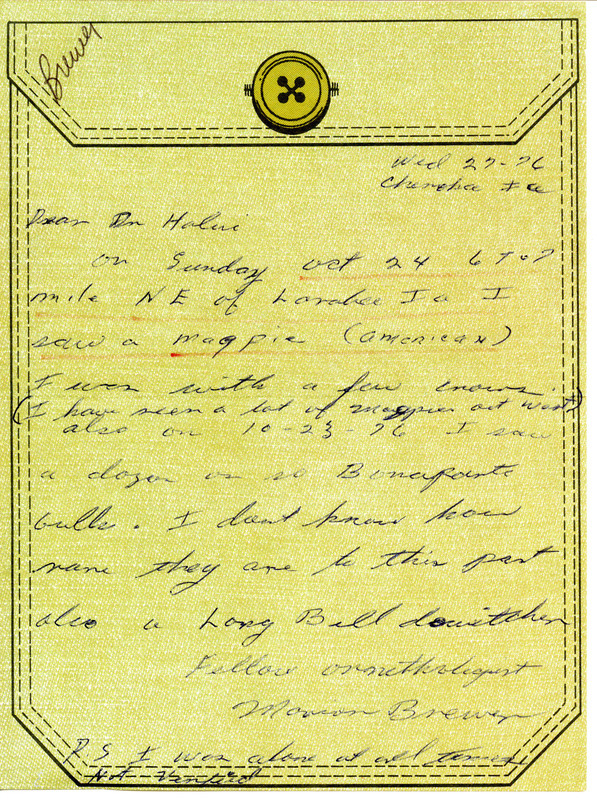 Brewer
Wed 27-76
Cherokee Ia
Dear Dr Halmi
on Sunday oct 24 6 to 7
mile NE of Larabee Ia I
saw a magpie (american)
I was with a few crows.
(I have seen a lot of magpies out west)
also on 10-23-76 I saw
a dozen or so Bonaparte
Gulls. I dont know how
rare they are to this part
also a Long Bill dowitcher
Fellow ornethologist
Marion Brewer
P.S I was alone at all times
Not Verified